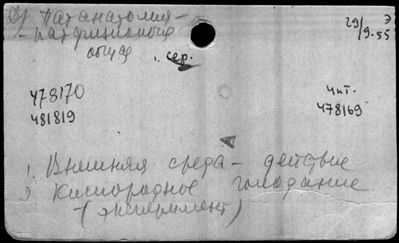 Патанатомия -
- патфизиология
общая
сер.
29/9-55 Э
478170
481819
чит.
478169
1. Внешняя среда - действие
2. Кислородное голодание
- (эксперимент)